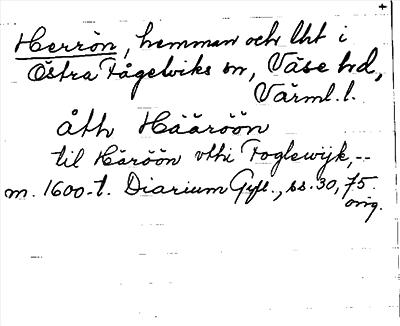 Herrön, hemman och lht i
Östra Fågelviks sn, Väse hd,
Värml. l.
åth Hääröön
til Häröön vthi Foglewijk, --
m. 1600-t. Diarium Gyll., ss. 30, 75.
orig.